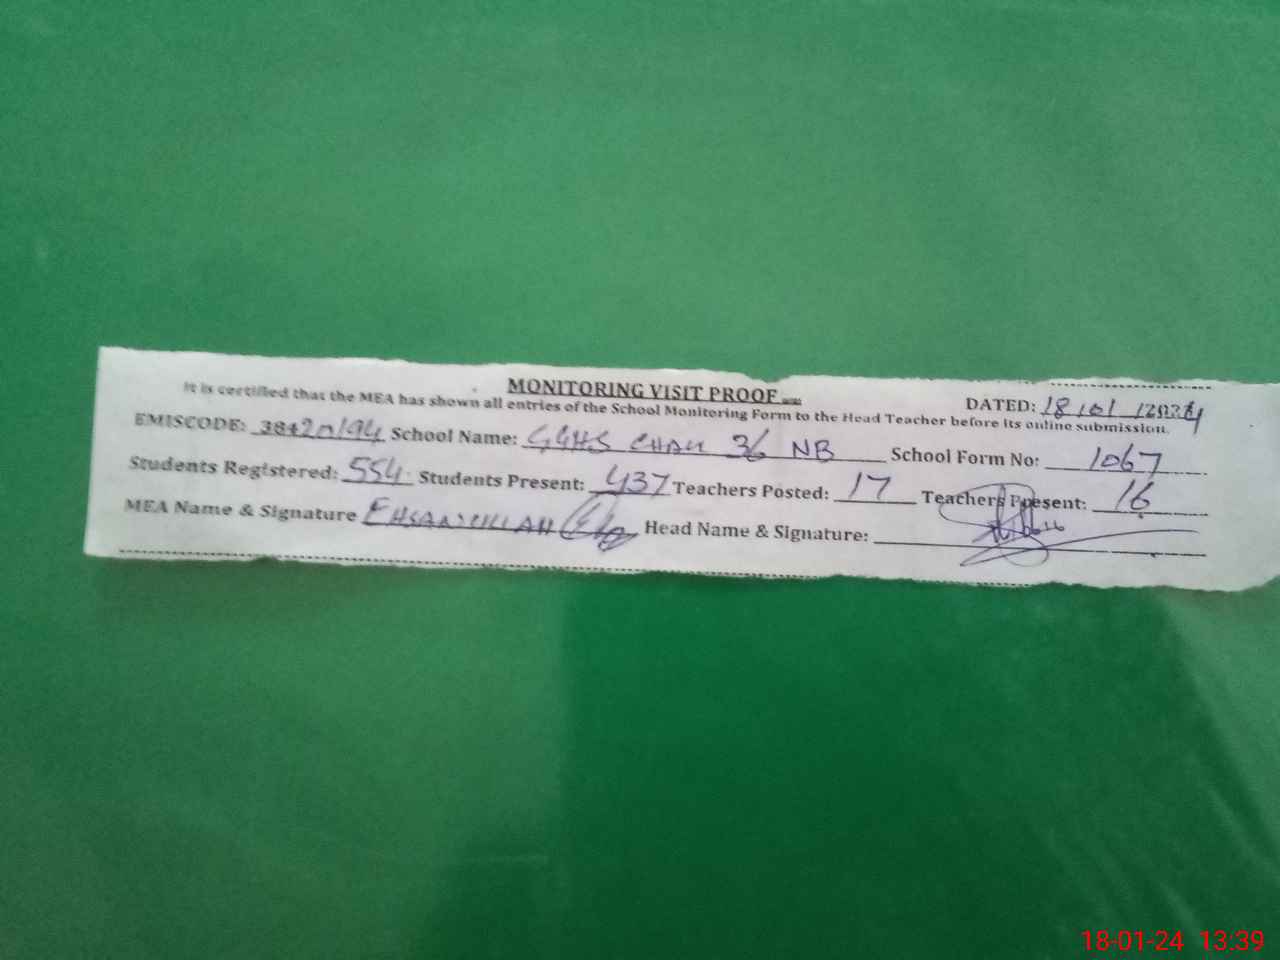 MONITORING VISIT PROOF
DATED: 18/01/2024
It is certified that the MEA has shown all entries of the School Monitoring Form to the Head Teacher before its online submission.
EMISCODE: School Name: GGHS CHAK 36 NB School Form No: 1067
Students Registered: 554 Students Present: 437 Teachers Posted: 17 Teachers Present: 16
MEA Name & Signature EHSANULLAH Head Name & Signature:
18-01-24 13:39